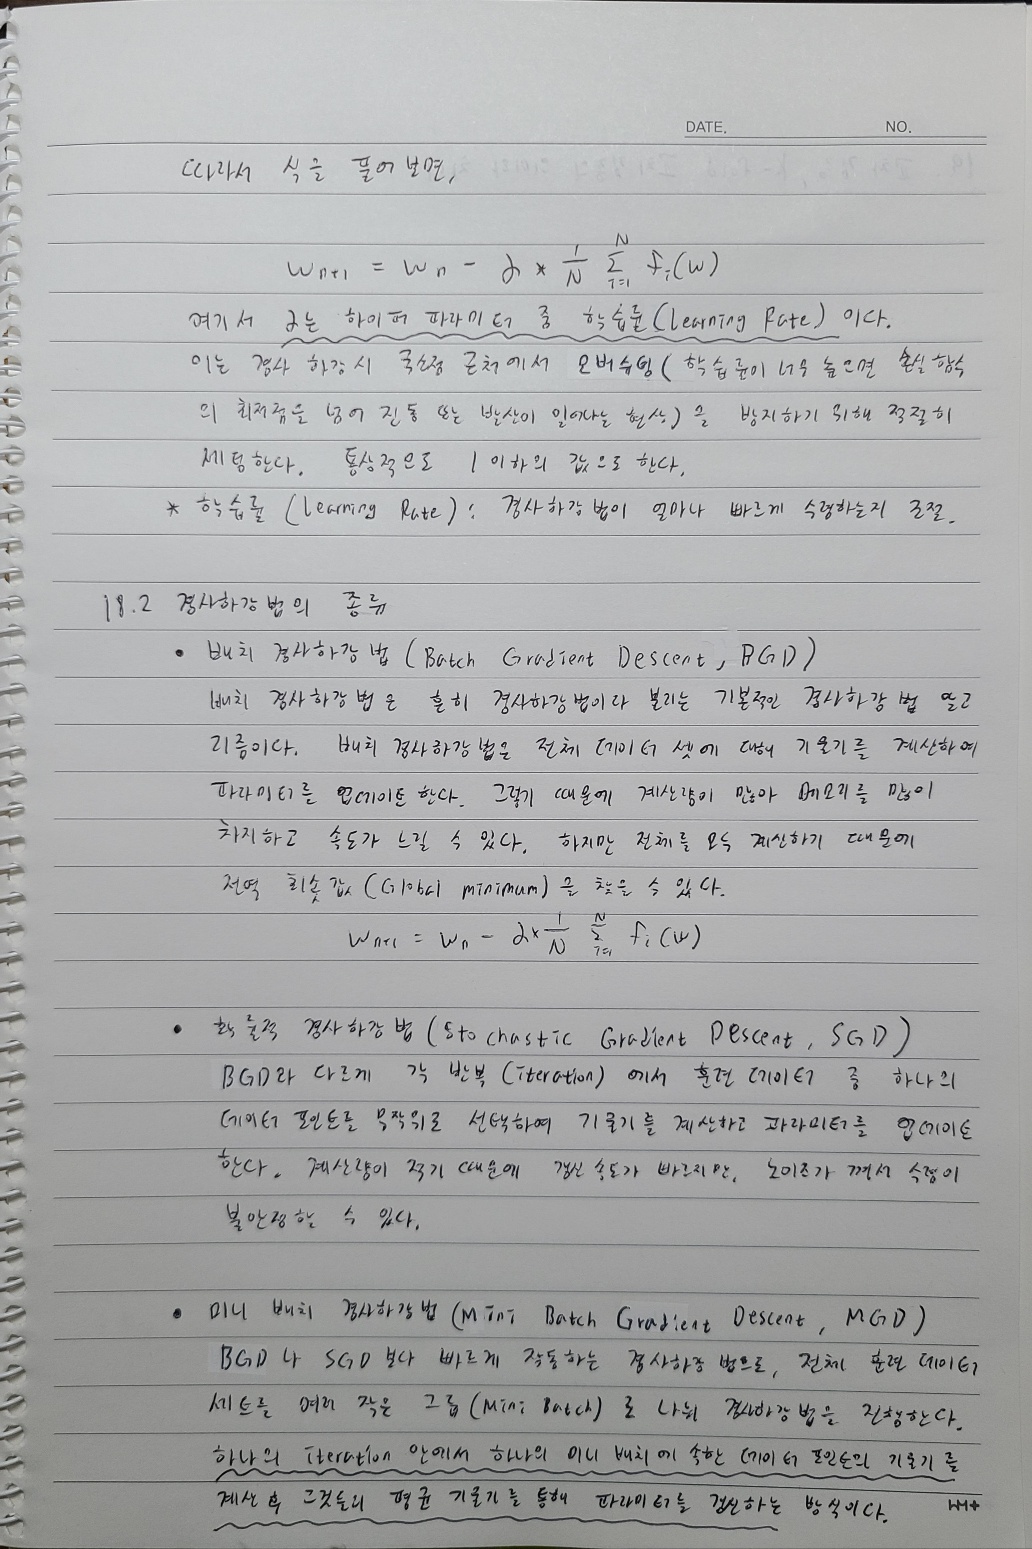 DATE. NO.
따라서 식을 풀어보면,
w_{n+1} = w_n - α * 1/N Σ_{i=1}^{N} f_i(w)
여기서 α는 하이퍼 파라미터 중 학습률(Learning Rate) 이다.
이는 경사 하강 시 국소점 근처에서 오버슈팅( 학습률이 너무 높으면 손실 함수
의 최저점을 넘어 진동 또는 발산이 일어나는 현상)을 방지하기 위해 적절히
세팅한다. 통상적으로 1 이하의 값으로 한다.
* 학습률 (Learning Rate) : 경사하강법이 얼마나 빠르게 수렴하는지 조절.
18.2 경사하강법의 종류
• 배치 경사하강법 (Batch Gradient Descent, BGD)
배치 경사하강법은 흔히 경사하강법이라 불리는 기본적인 경사하강법 알고
리즘이다. 배치 경사하강법은 전체 데이터 셋에 대해 기울기를 계산하여
파라미터를 업데이트 한다. 그렇기 때문에 계산량이 많아 메모리를 많이
차지하고 속도가 느릴 수 있다. 하지만 전체를 모두 계산하기 때문에
전역 최솟값(Global minimum)을 찾을 수 있다.
w_{n+1} = w_n - α* 1/N Σ_{i=1}^{N} f_i(w)
• 확률적 경사하강법 (Stochastic Gradient Descent, SGD)
BGD와 다르게 각 반복(iteration) 에서 훈련 데이터 중 하나의
데이터 포인트를 무작위로 선택하여 기울기를 계산하고 파라미터를 업데이트
한다. 계산량이 적기 때문에 갱신 속도가 빠르지만, 노이즈가 껴서 수렴이
불안정할 수 있다.
• 미니 배치 경사하강법 (Mini Batch Gradient Descent, MGD)
BGD나 SGD 보다 빠르게 작동하는 경사하강법으로, 전체 훈련 데이터
세트를 여러 작은 그룹(Mini Batch)로 나눠 경사하강법을 진행한다.
하나의 iteration 안에서 하나의 미니 배치에 속한 데이터 포인트의 기울기를
계산 후 그것들의 평균 기울기를 통해 파라미터를 갱신하는 방식이다.